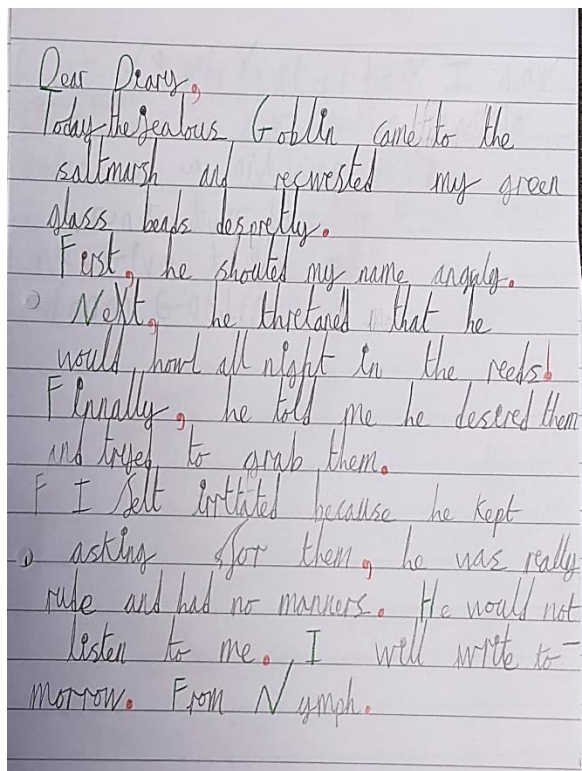 Dear Diary,
Today the jealous Goblin came to the
saltmarsh and recwested my green
glass beads despretly.
First, he shouted my name angaly.
Next, he thretaned that he
would howl all night in the reeds!
Finnally, he told me he desired them
and tryed to grab them.
F I felt irrttated because he kept
asking for them, he was really
rude and had no manners. He would not
listen to me. I will write to-
morrow. From Nymph.